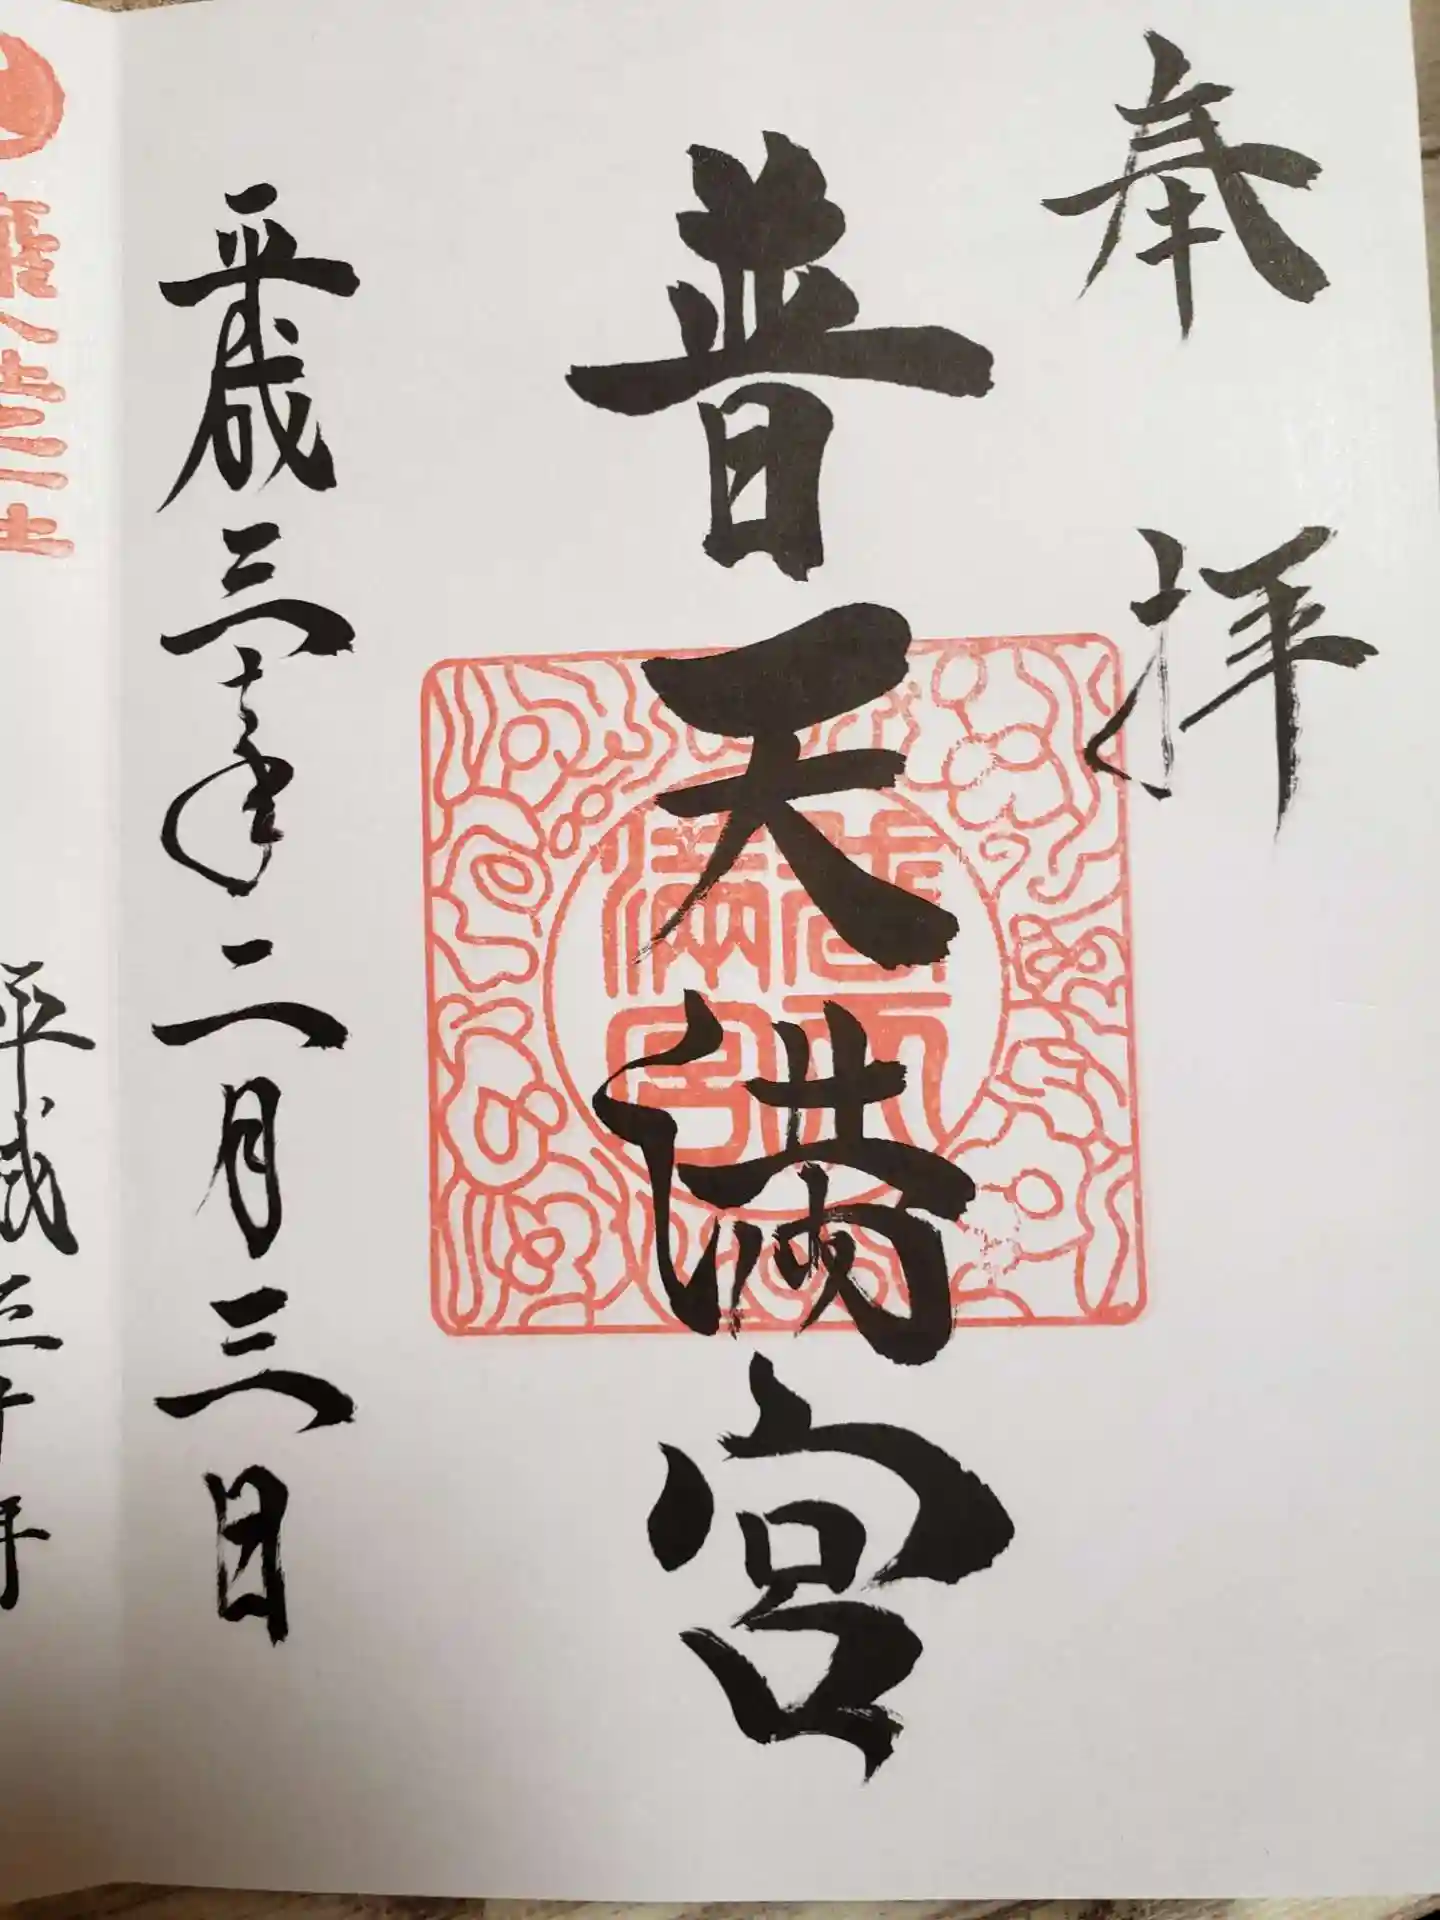 奉拝
普天満宮
普天
満宮
平成三十年二月三日
平成三十年